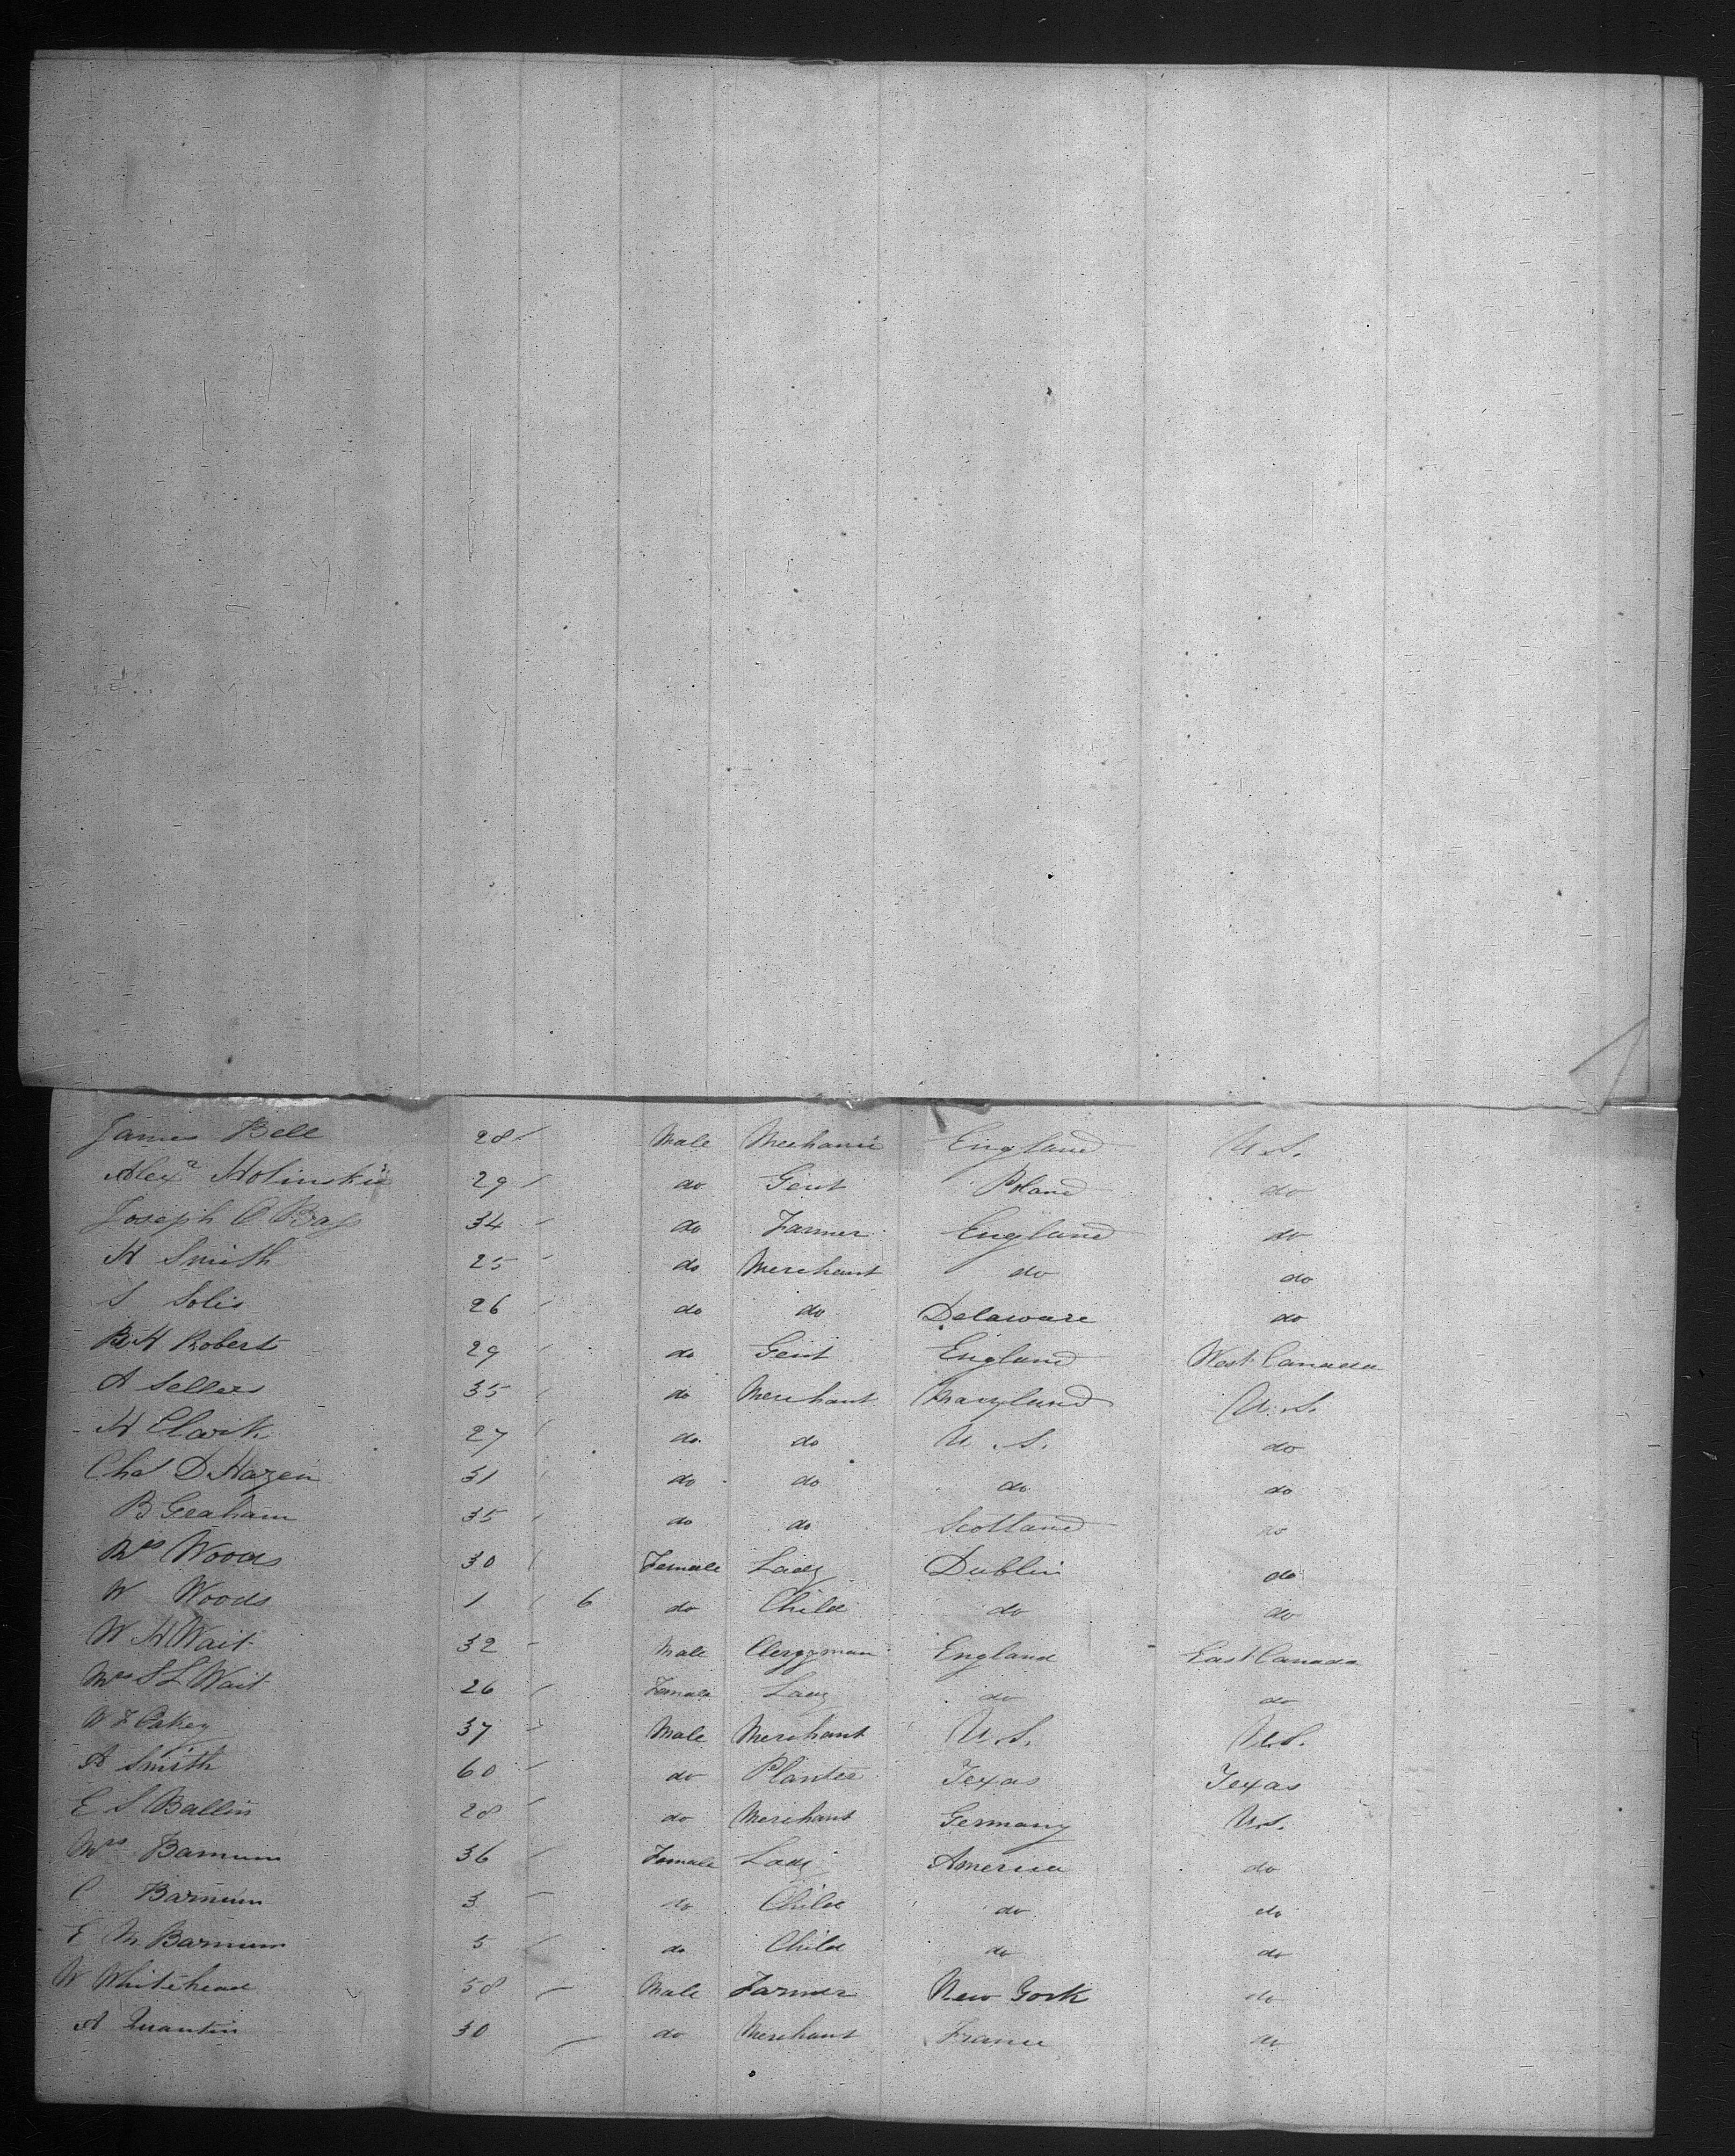 James Bell 28 Male Mechanic England U.S.
Alexr Holinskie 29 do Gent Poland do
Joseph O Bray 34 do Farmer England do
H Smith 25 do Merchant do do
S Solis 26 do do Delaware do
B H Roberts 29 do Gent England West Canada
A Sellers 35 do Merchant Maryland U.S.
H Clark 27 do do U.S. do
Chas D Hazen 31 do do do do
B Graham 35 do do Scotland do
Mrs Woods 30 Female Lady Dublin do
W Woods 1 6 do Child do do
W H Wait 32 Male Clergyman England East Canada
Mrs S L Wait 26 Female Lady do do
W F 37 Male Merchant U.S. U.S.
A Smith 60 do Planter Texas Texas
E S Ballin 28 do Merchant Germany U.S.
Mrs Barnum 36 Female Lady America do
C Barnum 3 do Child do do
E M Barnum 5 do Child do do
W Whitehead 58 Male Farmer New York do
A Quantin 30 do Merchant France do